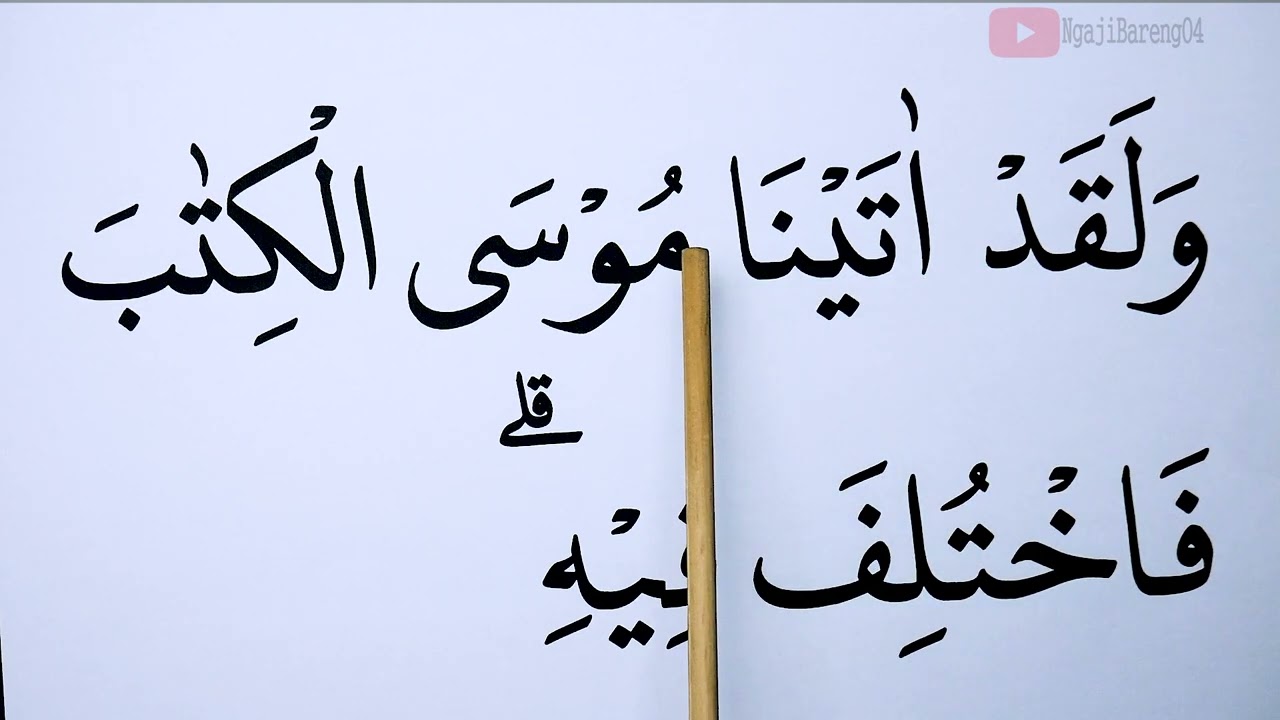 NgajiBareng04
وَلَقَدْ اٰتَيْنَا مُوْسَى الْكِتٰبَ
قلے
فَاخْتُلِفَ فِيْهِ